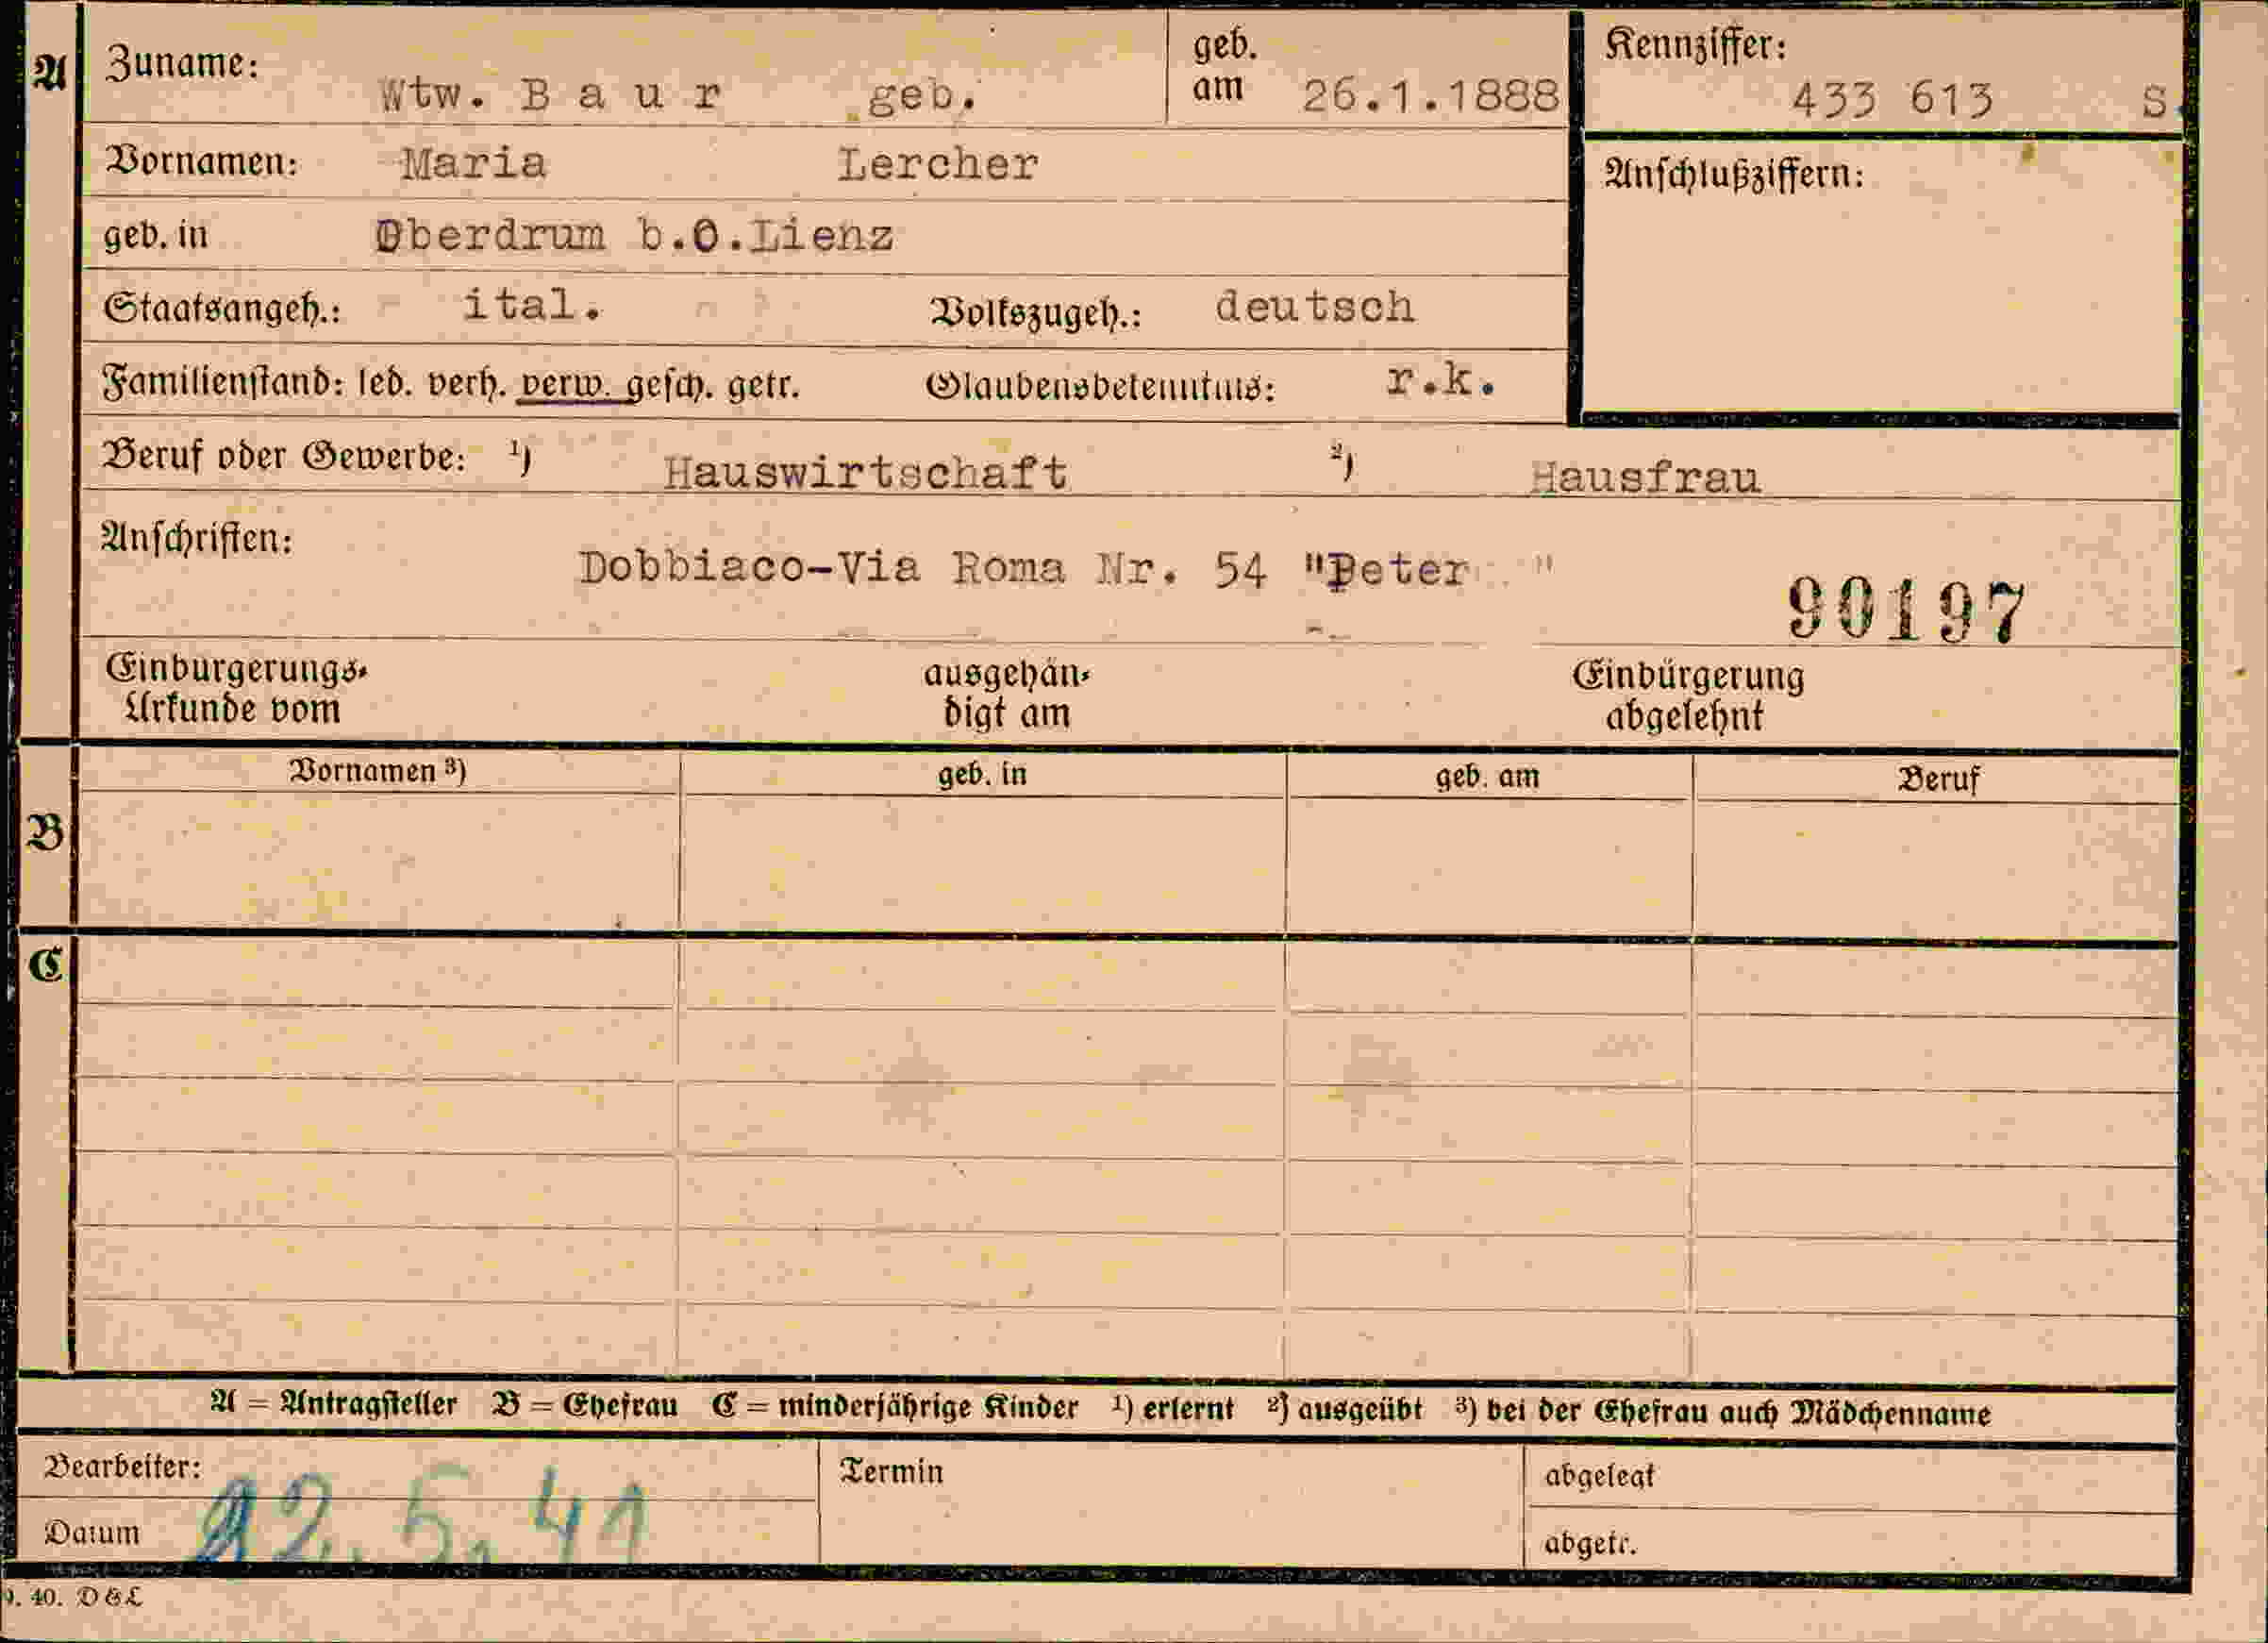 A Zuname: Wtw. B a u r geb. geb. am 26.1.1888 Kennziffer: 433 613 S.
Vornamen: Maria Lercher Anschlußziffern:
geb. in Oberdrum b.O.Lienz
Staatsangeh.: ital. Volkszugeh.: deutsch
Familienstand: led. verh. verw. gesch. getr. Glaubensbekenntnis: r.k.
Beruf oder Gewerbe: ¹) Hauswirtschaft ²) Hausfrau
Anschriften: Dobbiaco-Via Roma Nr. 54 "Peter "
90197
Einbürgerungs-
Urkunde vom
ausgehän-
digt am
Einbürgerung
abgelehnt
Vornamen ³) geb. in geb. am Beruf
B
C
A = Antragsteller B = Ehefrau C = minderjährige Kinder ¹) erlernt ²) ausgeübt ³) bei der Ehefrau auch Mädchenname
Bearbeiter: Termin abgelegt
Datum 5. 41 abgetr.
9. 40. D&L